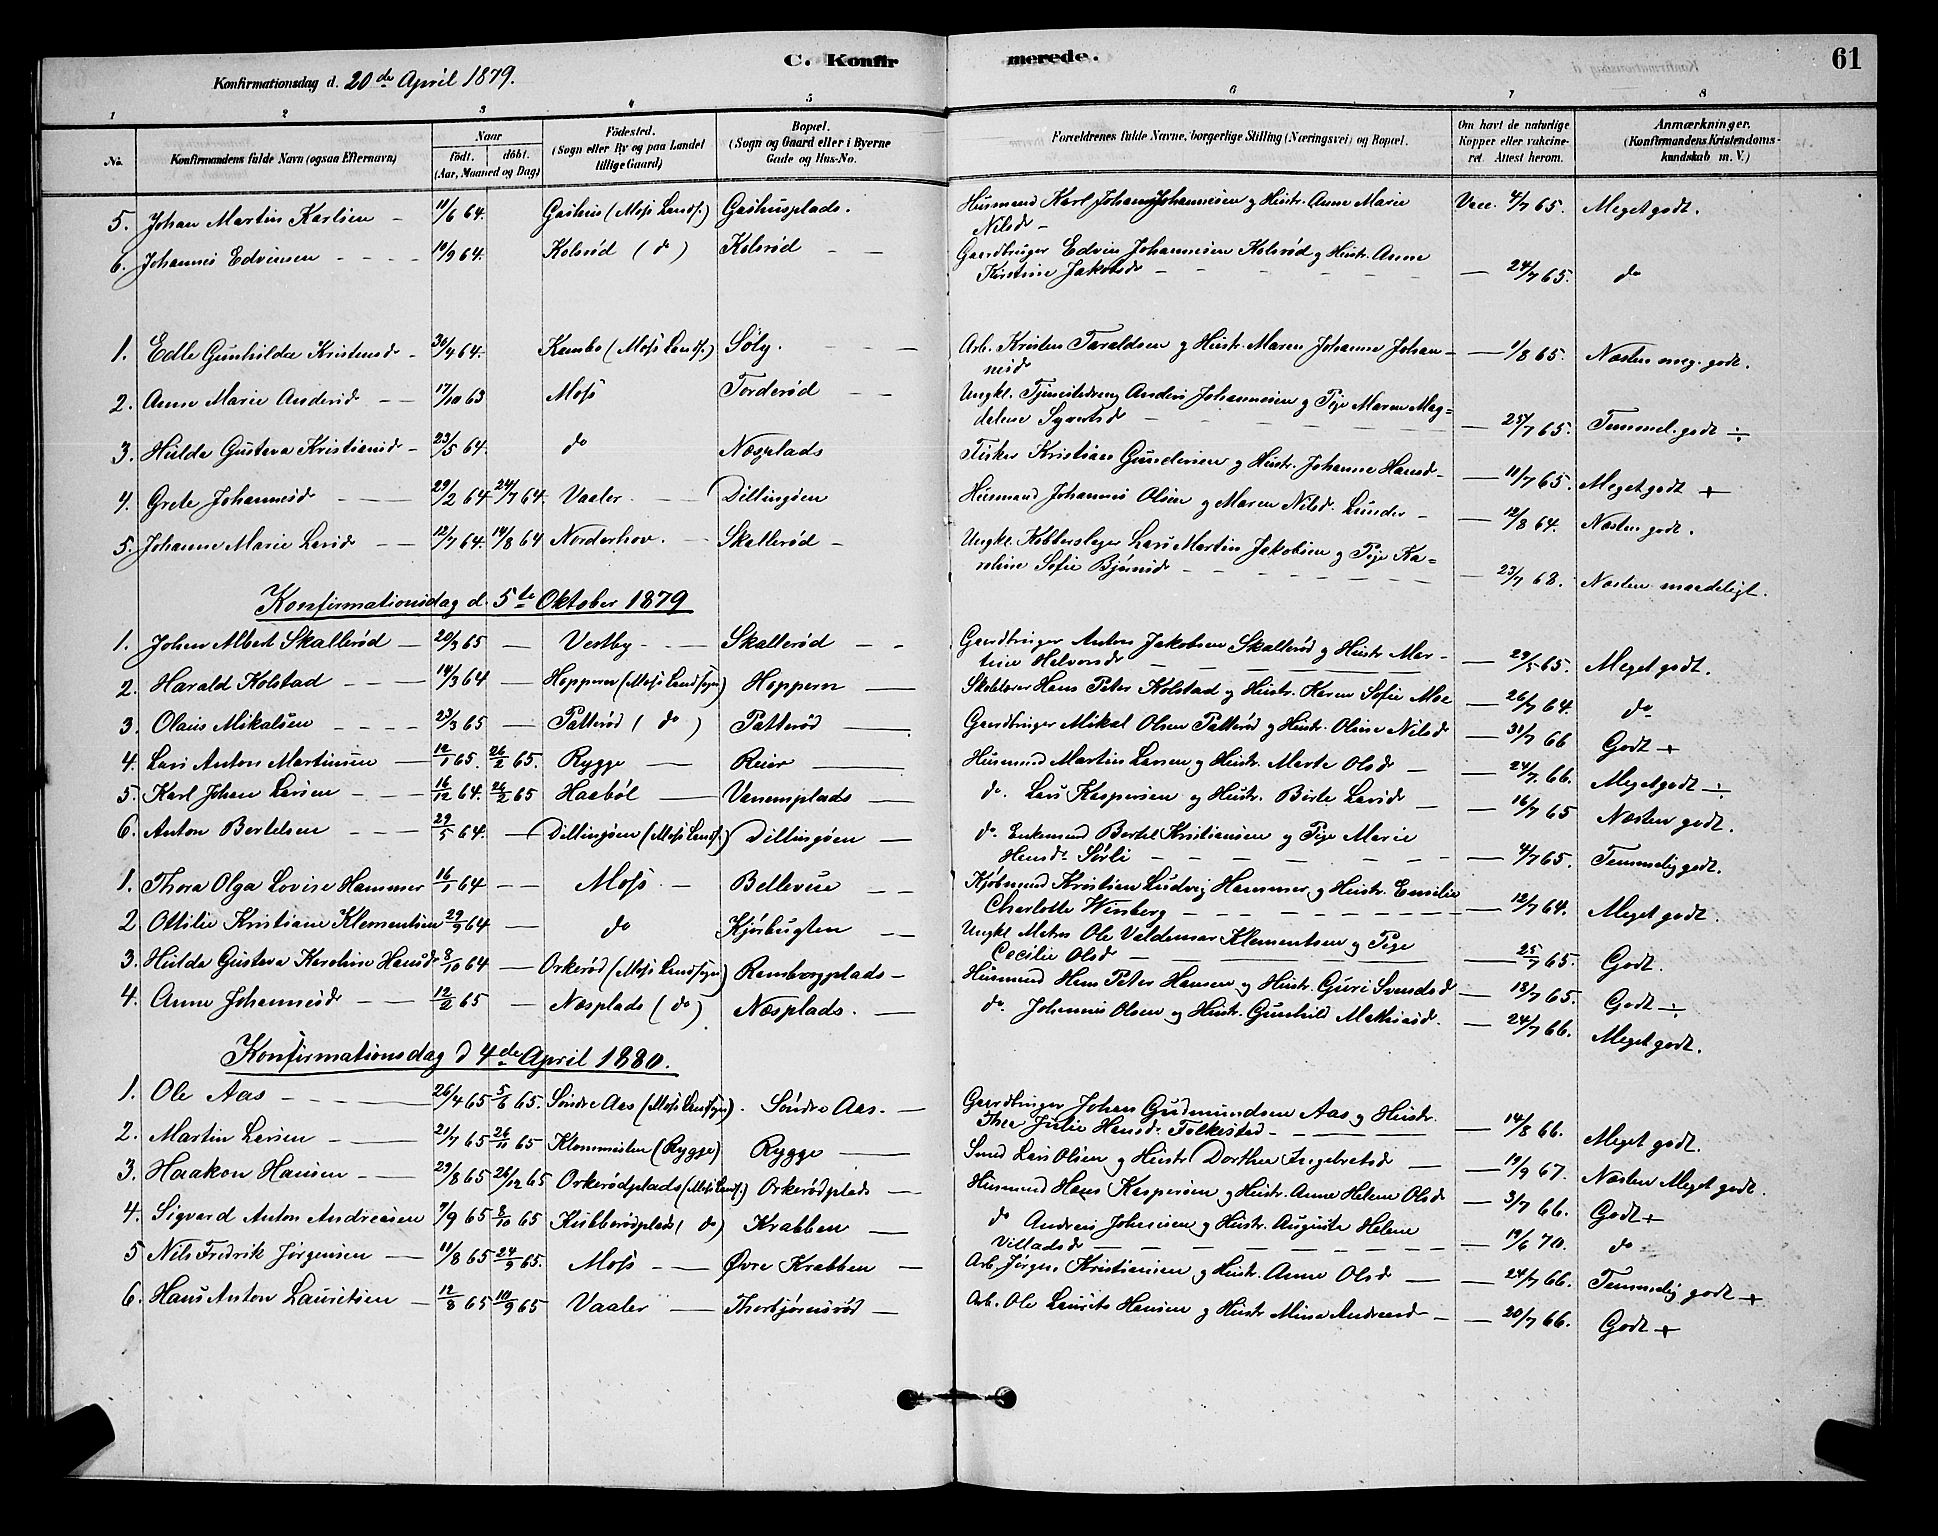 C. Konfirmerede.
61
Konfirmationsdag d. 20de April 1879.
1 2 3 4 5 6 7 8
No. Konfirmandens fulde Navn (ogsaa Efternavn) Naar födt. döbt. (Aar, Maaned og Dag) Födested. (Sogn eller By og paa Landet tillige Gaard) Bopæl. (Sogn og Gaard eller i Byerne Gade og Hus-No. Forældrenes fulde Navne, borgerlige Stilling (Næringsvei) og Bopæl. Om havt de naturlige Kopper eller vakcineret. Attest herom. Anmærkninger. (Konfirmandens Kristendomskundskab m. V.)
5. Johan Martin Karlsen – 11/6 64. Gashus (Moss Lands.) Gashusplads. Husmand Karl Johan Johannesen g Hustr. Anne Marie Vacc. 4/7 65. Meget godt.
Nilsd –
6. Johannes Edvinsen 19/9 64. Kolsrød (do) Kolsrød Gaardbruger Edvin Johannesen Kolsrød g Hustr. Anne
Kristine Jakobsd – 24/7 65. do
1. Edle Gunhilda Kristensd – 30/4 64. Kambo (Moss Lands.) Söly. Arb. Kristen Taraldsen g Hustr. Maren Johanne Johan-
nesd – 1/8 65. Næsten meg. godt.
2. Anne Marie Andersd 17/10 63 Moss Torderød Ungkl. Tjenestedreng Anders Johannesen g Pige Maren Mag-
dalene Syvertsd – 25/7 65. Temmel. godt ÷
3. Hulda Gustava Kristiansd – 23/5 64. do Næsplads Fisker Kristian Gundersen g Hustr. Johanne Hansd – 11/7 65. Meget godt +
4. Grete Johannesd 29/2 64. 24/7 64. Vaaler Dillingöen Husmand Johannes Olsen g Maren Nilsd. Lunder – 12/8 64. Næsten godt.
5. Johanne Marie Larsd 12/7 64. 14/8 64 Norderhov. Skallerød – Ungkl. Kobberslager Lars Martin Jakobsen g Pige Ka-
roline Sofie Bjørnsd – 23/7 68. Næsten maadeligt.
Konfirmationsdag d. 5te Oktober 1879
1. Johan Albert Skallerød – 20/3 65 – Vestby Skallerød Gaardbruger Anton Jakobsen Skallerød g Hustr Mar-
tine Halvorsd – 29/5 65. Meget godt.
2. Harald Kolstad 14/3 64 – Hoppern (Moss Landsogn) Hoppern Skolelærer Hans Peter Kolstad g Hustr. Karen Sofie Moe – 26/7 64. do
3. Olaus Mikalsen 23/3 65 – Patterød (do) Patterød Gaardbruger Mikal Olsen Patterød g Hustr. Oline Nilsd – 31/7 66 Godt +
4. Lars Anton Martinsen 12/1 65. 26/2 65. Rygge Reier Husmand Martin Larsen g Hustr. Marte Olsd – 24/7 66. Meget godt ÷
5. Karl Johan Larsen 16/12 64. 26/2 65 Haaböl Vanemplads do. Lars Kaspersen g Hustr. Berte Larsd – 16/7 65 Næsten godt.
6. Anton Bertelsen 29/5 64. – Dillingöen (Moss Lands.) Dillingöen do. Enkemand Bertel Kristiansen g Pige Marie
Hansd. Sørli – 4/7 65. Temmelig godt.
1. Thora Olga Lovise Hammer 16/1 64 – Moss – Bellevue Kjöbmand Kristian Ludvig Hammer g Hustr. Emilie
Charlotte Winberg – 12/7 64. Meget godt.
2 Ottilie Kristiane Klementsen 29/9 64 – do Kjörbugten Ungkl. Matros Ole Valdemar Klementsen g Pige
Cecilie Olsd – 25/7 65. Godt.
3. Hulda Gustava Karoline Hansd 8/10 64 – Orkerød (Moss Landsogn) Ramborgplads – Husmand Hans Peter Hansen g Hustr. Guri Svendsd – 18/7 65. Godt ÷
4. Anne Johannesd 12/2 65 – Næsplads (do) Næsplads. do. Johannes Olsen g Hustr. Gunhild Mathiasd. – 24/7 66. Meget godt.
Konfirmationsdag d 4de April 1880.
1. Ole Aas 26/4 65 5/6 65. Söndre Aas (Moss Landsogn). Söndre Aas. Gaardbruger Johan Gudmundsen Aas g Hustr.
Thea Julie Hansd. Falkestad – 14/8 66. Meget godt.
2. Martin Larsen 21/7 65 26/11 65 Klommesten (Rygge) Rygge Smed Lars Olsen g Hustr Dorthea Ingebretsd – 19/9 67. Næsten Meget godt.
3. Haakon Hansen 29/8 65 26/12 65 Orkerødplads (Moss Lands.) Orkerødplads Husmand Hans Kaspersen g Hustr. Anne Helene Olsd – 3/7 66. Godt +
4. Sigvard Anton Andreasen 7/9 65 8/10 65 Kubberødplads (do) Krabben do Andreas Johansen g Hustr. Auguste Helene
Villadsd – 19/6 70. do
5 Nils Fredrik Jørgensen 11/8 65 24/9 65. Moss Øvre Krabben Arb. Jørgen Kristiansen g Hustr. Anne Olsd – 24/7 66. Temmelig godt +
6. Hans Anton Lauritsen 12/8 65 10/9 65 Vaaler Thorbjørnsrød – Arb. Ole Laurits Hansen g Hustr Mina Andreasd – 20/7 66. Godt +